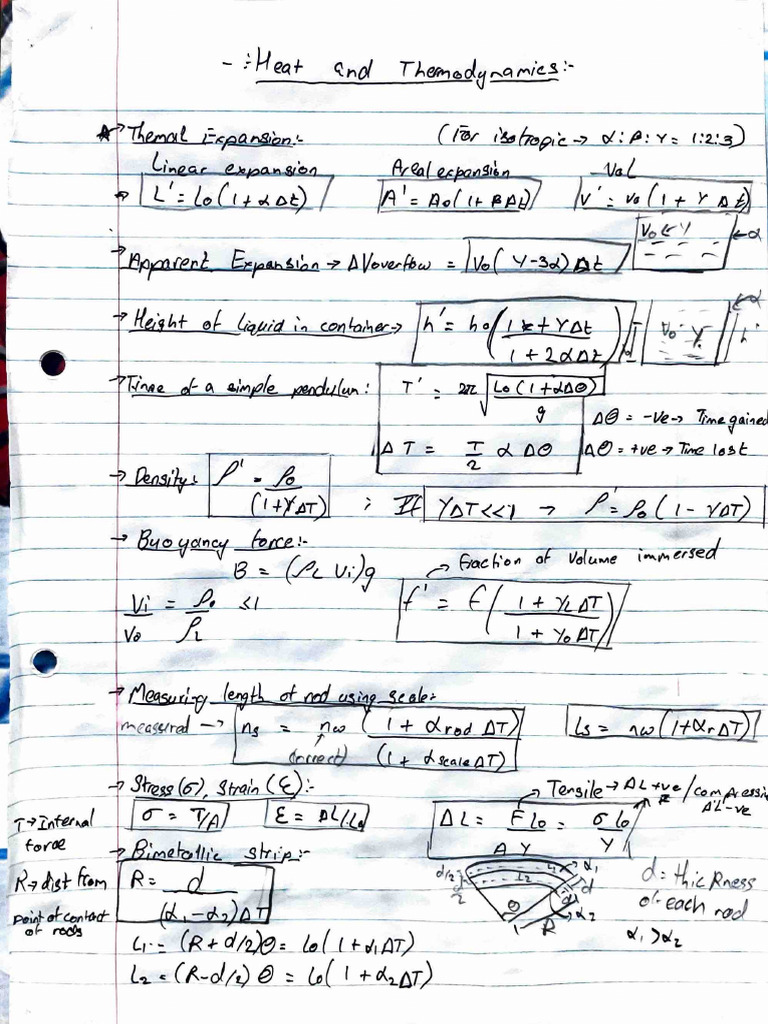 -:Heat and Themodynamics:-
→ Themal Expansion:- (For isotropic → α:β:γ = 1:2:3)
Linear expansion Areal expansion Vol
→ L' = L0(1+αΔt) A' = A0(1+βΔt) V' = V0(1+γΔt)
→ Apparent Expansion → ΔVoverflow = V0(γ-3α)Δt V0 γ ←α
→ Height of liquid in container → h' = h0 (1+γΔt / 1+2αΔt) V0 γ h' α
→ Time of a simple pendulum: T' = 2π √(L0(1+αΔθ) / g)
Δθ = -ve → Time gained
ΔT = T/2 α Δθ Δθ = +ve → Time lost
→ Density: ρ' = ρ0 / (1+γΔT) ; If γΔT<<1 → ρ' = ρ0(1-γΔT)
→ Buoyancy force:-
→ fraction of volume immersed
B = (ρL Vi)g
Vi/V0 = ρ0/ρL ≤1 f' = f (1+γLΔT / 1+γ0ΔT)
→ Measuring length of rod using scale:-
measured → ns = nw (1+αrod ΔT) / (1+αscaleΔT) Ls = nw(1+αrΔT)
(correct)
→ Stress(σ), Strain(ε):- → Tensile → ΔL +ve / compressi ΔL -ve
σ = T/A ε = ΔL/L0 ΔL = F L0 / A Y = σ L0 / Y
T → Internal force
→ Bimetallic strip:-
R → dist from point of contact of rods
R = d / (α1-α2)ΔT
d/2 L1 L2 α1 d α2 θ R
d = thickness of each rod
α1 > α2
L1 = (R+d/2)θ = L0(1+α1ΔT)
L2 = (R-d/2)θ = L0(1+α2ΔT)